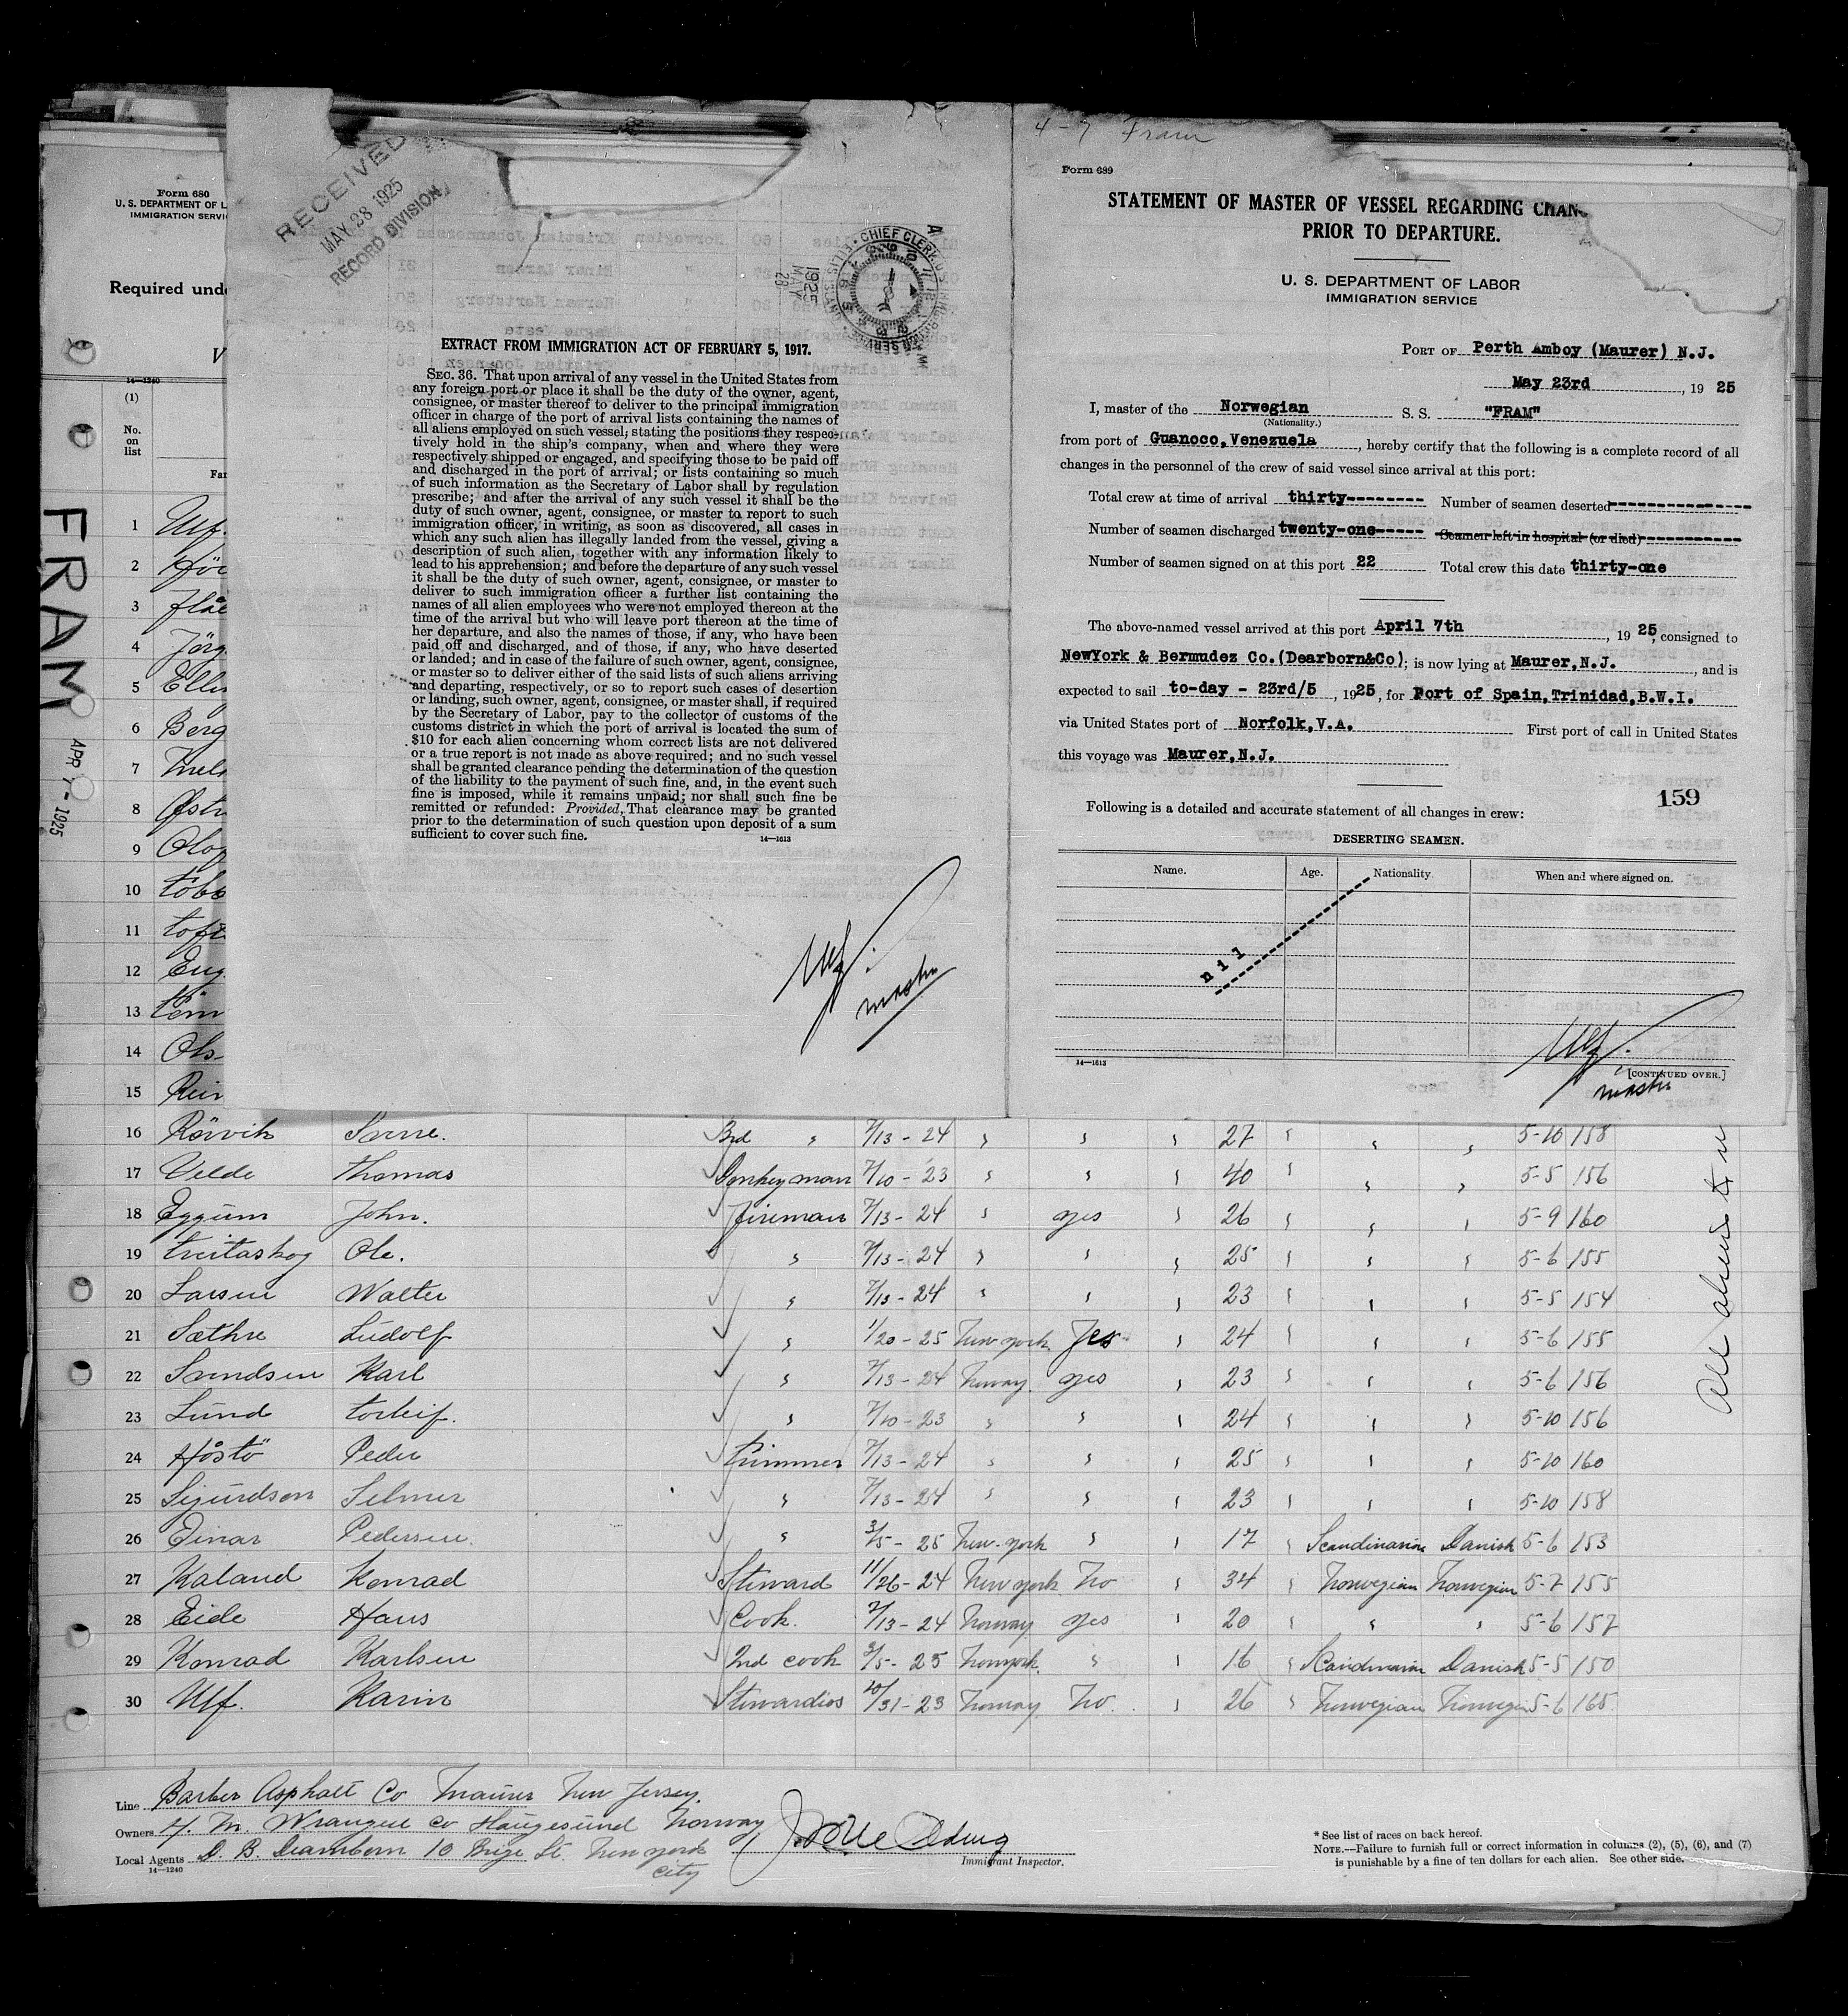 4-7 Fram
Form 680
U. S. DEPARTMENT OF L
IMMIGRATION SERVIC
Required unde
V
14—1240
(1)
No.
on
list
Far
FRAM
APR 7 - 1925
RECEIVED
MAY 28 1925
RECORD DIVISION
CHIEF CLERK
1925
MAY
28
EXTRACT FROM IMMIGRATION ACT OF FEBRUARY 5, 1917.
SEC. 36. That upon arrival of any vessel in the United States from
any foreign port or place it shall be the duty of the owner, agent,
consignee, or master thereof to deliver to the principal immigration
officer in charge of the port of arrival lists containing the names of
all aliens employed on such vessel, stating the positions they respec-
tively hold in the ship's company, when and where they were
respectively shipped or engaged, and specifying those to be paid off
and discharged in the port of arrival; or lists containing so much
of such information as the Secretary of Labor shall by regulation
prescribe; and after the arrival of any such vessel it shall be the
duty of such owner, agent, consignee, or master to report to such
immigration officer, in writing, as soon as discovered, all cases in
which any such alien has illegally landed from the vessel, giving a
description of such alien, together with any information likely to
lead to his apprehension; and before the departure of any such vessel
it shall be the duty of such owner, agent, consignee, or master to
deliver to such immigration officer a further list containing the
names of all alien employees who were not employed thereon at the
time of the arrival but who will leave port thereon at the time of
her departure, and also the names of those, if any, who have been
paid off and discharged, and of those, if any, who have deserted
or landed; and in case of the failure of such owner, agent, consignee,
or master so to deliver either of the said lists of such aliens arriving
and departing, respectively, or so to report such cases of desertion
or landing, such owner, agent, consignee, or master, shall, if required
by the Secretary of Labor, pay to the collector of customs of the
customs district in which the port of arrival is located the sum of
$10 for each alien concerning whom correct lists are not delivered
or a true report is not made as above required; and no such vessel
shall be granted clearance pending the determination of the question
of the liability to the payment of such fine, and, in the event such
fine is imposed, while it remains unpaid; nor shall such fine be
remitted or refunded: Provided, That clearance may be granted
prior to the determination of such question upon deposit of a sum
sufficient to cover such fine.
14—1613
Ulf.
master
Form 689
STATEMENT OF MASTER OF VESSEL REGARDING CHANG
PRIOR TO DEPARTURE.
U. S. DEPARTMENT OF LABOR
IMMIGRATION SERVICE
PORT OF Perth Amboy (Maurer) N.J.
May 23rd, 1925
I, master of the Norwegian S. S. "FRAM"
(Nationality.)
from port of Guanoco,Venezuela, hereby certify that the following is a complete record of all
changes in the personnel of the crew of said vessel since arrival at this port:
Total crew at time of arrival thirty-------- Number of seamen deserted----------------
Number of seamen discharged twenty-one----- Seamen left in hospital (or died)-----------
Number of seamen signed on at this port 22 Total crew this date thirty-one
The above-named vessel arrived at this port April 7th, 1925, consigned to
NewYork & Bermudez Co.(Dearborn&Co); is now lying at Maurer,N.J., and is
expected to sail to-day - 23rd/5, 1925, for Port of Spain,Trinidad,B.W.I.
via United States port of Norfolk,V.A. First port of call in United States
this voyage was Maurer,N.J.
159
Following is a detailed and accurate statement of all changes in crew:
DESERTING SEAMEN.
Name. Age. Nationality. When and where signed on.
nil
14—1613
[CONTINUED OVER.]
Ulf.
master
1 Ulf.
2
3
4 Jörg
5
6 Berg
7
8 Østr
9
10
11 Toft
12
13
14 Ols
15
16 Rörvik 3rd " 7/13-24 " " " 27 " " " 5-10 158
17 Velde Thomas Donkeyman 7/10-23 " " " 40 " " " 5-5 156
18 Eggum John. Fireman 7/13-24 " yes " 26 " " " 5-9 160
19 Ole. " 7/13-24 " " " 25 " " " 5-6 155
20 Larsen Walter " 7/13-24 " " " 23 " " " 5-5 154
21 Sæthre Ludolf " 1/20-25 New York Yes " 24 " " " 5-6 155
22 Karl " 7/13-24 Norway. yes " 23 " " " 5-6 156
23 Lund Torleif. " 7/10-23 " " " 24 " " " 5-10 156
24 Peder Trimmer 7/13-24 " " " 25 " " " 5-10 160
25 Sigurdson Selmer " 7/13-24 " " " 23 " " " 5-10 158
26 Einar Pedersen. " 3/5-25 New-York " " 17 " Scandinavian Danish 5-6 153
27 Kaland Konrad Steward 11/26-24 New York No " 34 " Norwegian Norwegian 5-7 155
28 Eide Hans Cook. 7/13-24 Norway yes " 20 " " " 5-6 157
29 Konrad Karlsen 2nd cook 3/5-25 New York. " " 16 " Scandinavian Danish 5-5 150
30 Ulf. Karin Stewardios 10/31-23 Norway No. " 26 " Norwegian Norwegian 5-6 165
Line Barber Asphalt Co Maurer New Jersey.
Owners H. M. Wrangell Co Haugesund Norway
Local Agents D. B. Dearborn 10 St. New York
City
14—1240
Immigrant Inspector.
* See list of races on back hereof.
NOTE.—Failure to furnish full or correct information in columns (2), (5), (6), and (7)
is punishable by a fine of ten dollars for each alien. See other side.